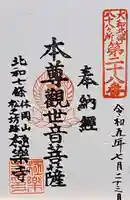 大和北部
八十八ヶ所
第二十八番
奉納經
令和五年七月二十三日
本尊觀世音菩薩
北和七篠
休岡山
松立坊跡
本樂寺